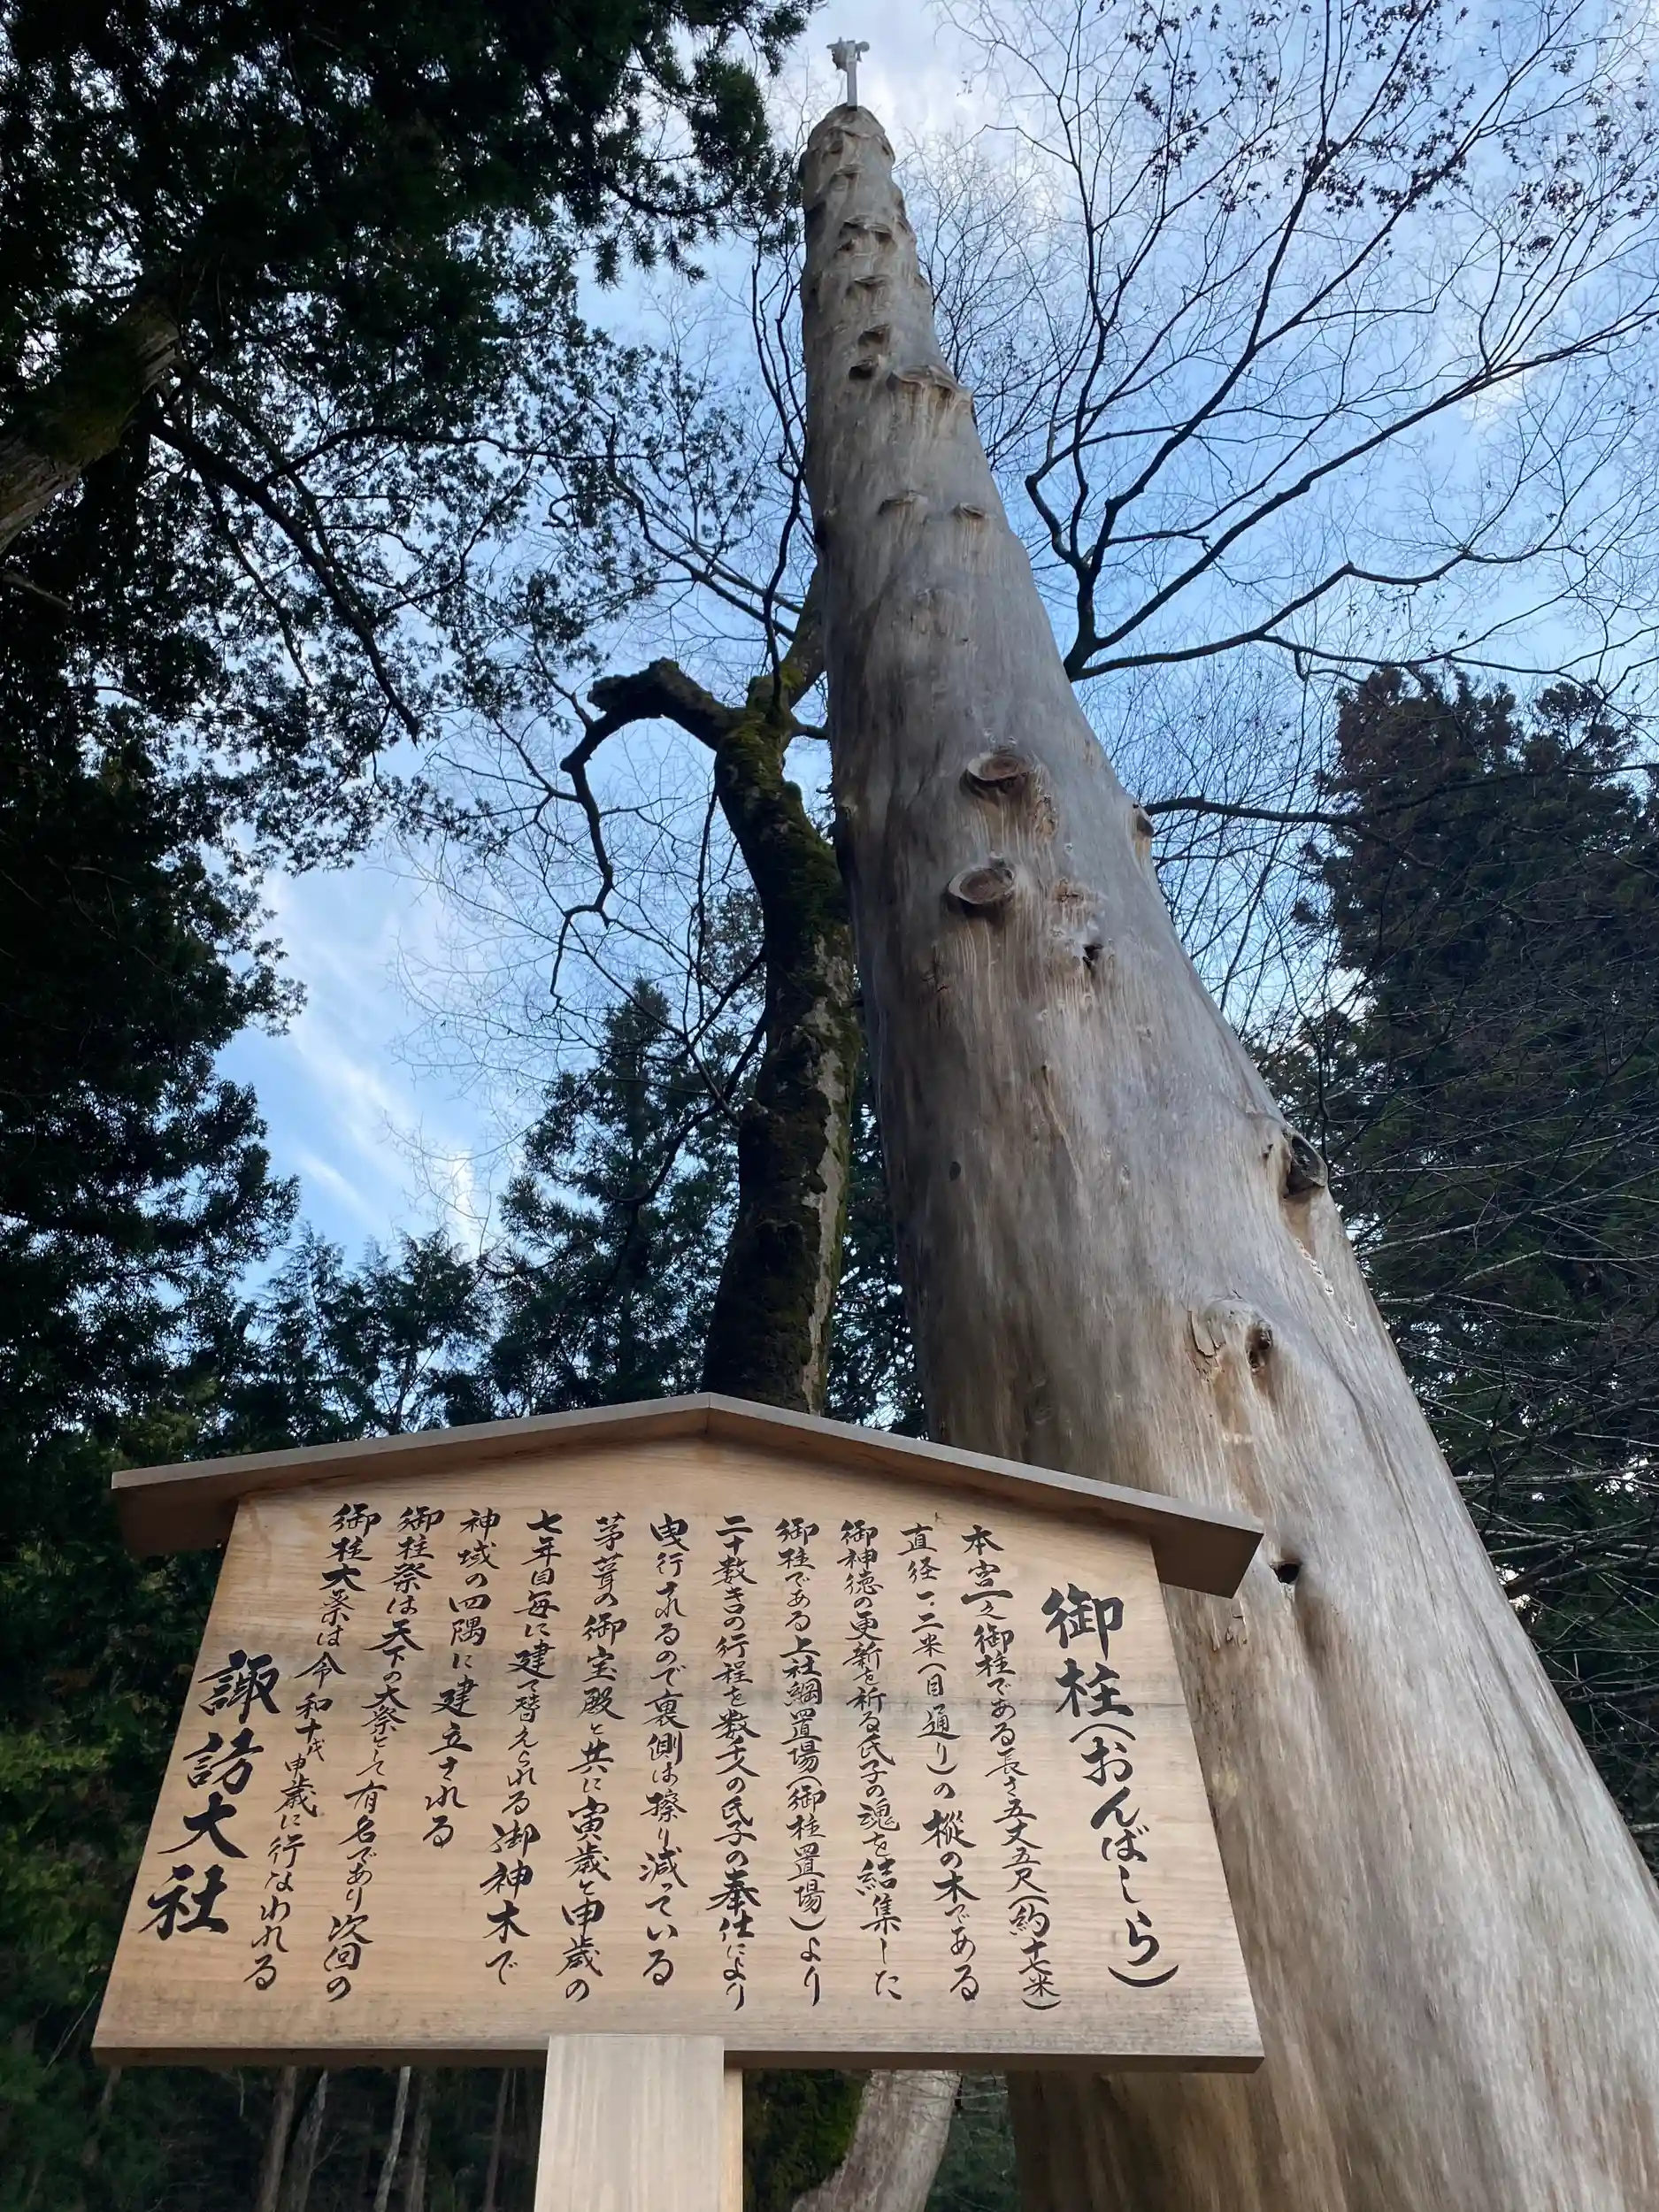 御柱(おんばしら)
本宮一之御柱である長さ五丈五尺(約十七米)
直径一・二米(目通り)の樅の木である
御神徳の更新を祈る氏子の魂を結集した
御柱である上社綱置場(御柱置場)より
二十数きの行程を数千人の氏子の奉仕により
曳行されるので裏側は擦り減っている
茅葺の御宝殿と共に寅歳と申歳の
七年目毎に建て替えられる御神木で
神域の四隅に建立される
御柱祭は天下の大祭として有名であり次回の
御柱大祭は令和十年申歳に行なわれる
諏訪大社